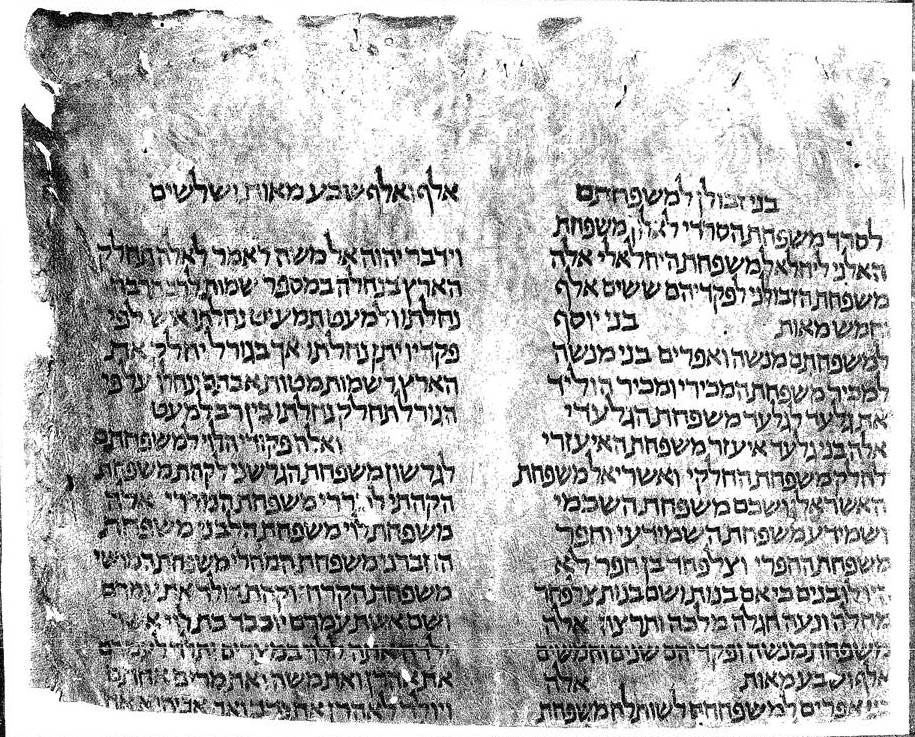 בני זבולן למשפחתם
לסרד משפחת הסרדי לאלון משפחת
האלני ליחלאל משפחת היחלאלי אלה
משפחת הזבולני לפקדיהם ששים אלף
וחמש מאות בני יוסף
למשפחתם מנשה ואפרים בני מנשה
למכיר משפחת המכירי ומכיר הוליד
את גלעד לגלעד משפחת הגלעדי
אלה בני גלעד איעזר משפחת האיעזרי
לחלק משפחת החלקי ואשריאל משפחת
האשראלי ושכם משפחת השכמי
ושמידע משפחת השמידעי וחפר
משפחת החפרי וצלפחד בן חפר לא
היו לו בנים כי אם בנות ושם בנות צלפחד
מחלה ונעה חגלה מלכה ותרצה אלה
משפחת מנשה ופקדיהם שנים וחמשים
אלף ושבע מאות אלה
בני אפרים למשפחתם לשותלח משפחת
אלף ואלף שבע מאות ושלשים
וידבר יהוה אל משה לאמר לאלה תחלק
הארץ בנחלה במספר שמות לרב תרבה
נחלתו ולמעט תמעיט נחלתו איש לפי
פקדיו יתן נחלתו אך בגורל יחלק את
הארץ לשמות מטות אבתם ינחלו על פי
הגורל תחלק נחלתו בין רב למעט
ואלה פקודי הלוי למשפחתם
לגרשון משפחת הגרשני לקהת משפחת
הקהתי למררי משפחת המררי אלה
משפחת לוי משפחת הלבני משפחת
החברני משפחת המחלי משפחת המושי
משפחת הקרחי וקהת הולד את עמרם
ושם אשת עמרם יוכבד בת לוי אשר
ילדה אתה ללוי במצרים ותלד לעמרם
את אהרן ואת משה ואת מרים אחתם
ויולד לאהרן את נדב ואת אביהוא את